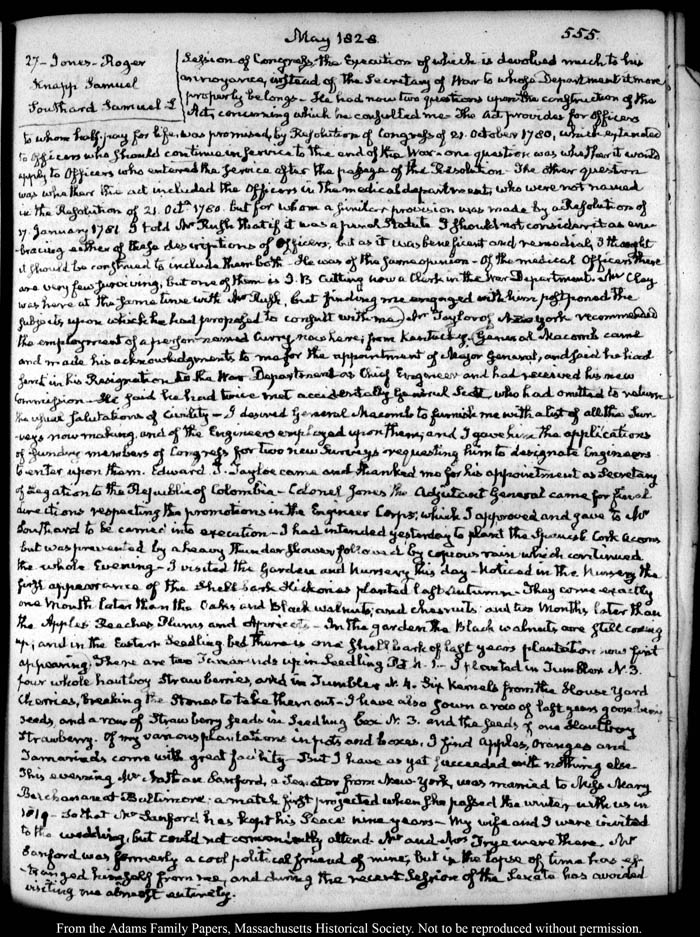 May 1828
555.
27- Jones- Roger
Knapp Samuel
Southard Samuel L
Session of Congress the Execution of which is devolved much to his
annoyance, instead of the Secretary of War to whose Department it more
properly belongs- He had now two questions upon the construction of the
Act, concerning which he consulted me- The Act provides for officers
to whom half-pay for life, was promised, by Resolution of Congress of 21. October 1780, which extended
to Officers who should continue in service to the end of the War- one question was whether it would
apply to Officers who entered the service after the passage of the Resolution The other question
was whether the act included the Officers in the medical department, who were not named
in the Resolution of 21. Octr 1780. but for whom a similar provision was made by a Resolution of
17. January 1781 I told Mr Rush that if it was a penal Statute I should not consider it as em-
bracing either of these descriptions of Officers, but as it was beneficent and remedial, I thought
it should be construed to include them both- He was of the same opinion- Of the medical Officers there
are very few surviving, but one of them is J. B Cutting now a Clerk in the War Department. Mr Clay
was here at the same time with Mr Rush, but finding me engaged with him postponed the
subjects upon which he had proposed to consult with me) Mr Taylor of New York recommended
the employment of a person named Curry now here, from Kentucky. General Macomb came
and made his acknowledgments to me for the appointment of Major General, and said he had
sent in his Resignation to the War Department as Chief Engineer and had received his new
Commission- He said he had twice met accidentally General Scott, who had omitted to return
the usual salutations of Civility- I desired General Macomb to furnish me with a list of all the Sur-
veys now making, and of the Engineers employed upon them; and I gave him the applications
of sundry members of Congress for two new Surveys requesting him to designate Engineers
to enter upon them. Edward T. Tayloe came and thanked me for his appointment as Secretary
of Legation to the Republic of Colombia- Colonel Jones the Adjutant General came for final
directions respecting the promotions in the Engineer Corps; which I approved and gave to Mr
Southard to be carried into execution- I had intended yesterday to plant the Spanish Cork Acorns
but was prevented by a heavy thunder shower followed by copious rain which continued
the whole Evening- I visited the Garden and Nursery this day- Noticed in the Nursery the
first appearance of the Shellbark Hickories planted last Autumn- They come exactly
one Month later than the Oaks and Black walnuts, and chesnuts and two Months later than
the Apples Peaches Plums and Apricots- In the garden the Black walnuts are still coming
up; and in the Eastern Seedling bed there is one Shellbark of last years plantation now first
appearing. There are two Tamarinds up in Seedling Pot N. 1.- I planted in Tumbler N. 3.
four whole hautboy Strawberries, and in Tumbler N. 4. Six Kernels from the House Yard
Cherries, breaking the Stones to take them out- I have also sown a row of last years gooseberry
seeds, and a row of Strawberry seeds in Seedling box N. 3. and the seeds of one Hautboy
Strawberry. Of my various plantations in pots and boxes, I find Apples, Oranges and
Tamarinds come with great facility- But I have as yet succeeded with nothing else
This evening Mr Nathan Sanford, a Senator from New-York, was married to Miss Mary
Buchanan at Baltimore; a match first projected when she passed the winter with us in
1819- So that Mr Sanford has kept his Peace nine years- My wife and I were invited
to the wedding, but could not conveniently attend. Mr and Mrs Frye were there. Mr
Sanford was formerly a cool political friend of mine, but in the lapse of time has es-
tranged himself from me, and during the recent Session of the Senate has avoided
visiting me almost entirely.
From the Adams Family Papers, Massachusetts Historical Society. Not to be reproduced without permission.